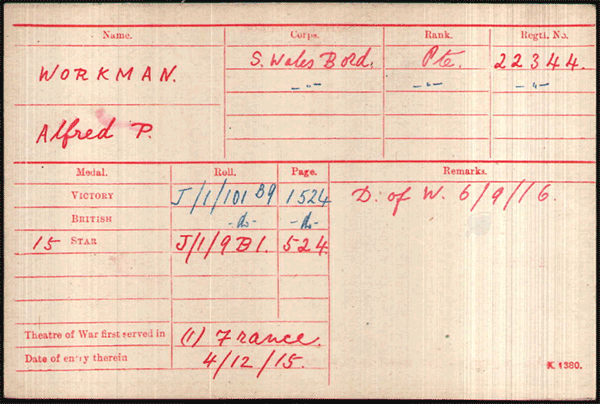 Name. Corps. Rank. Regtl. No.
WORKMAN. S. Wales Bord. Pte. 22344.
-"- -"- -"-
Alfred P.
Medal. Roll. Page. Remarks.
VICTORY J/1/101 B9 1524 D. of W. 6/9/16.
BRITISH -do- -do-
15 STAR J/1/9 B1. 524.
Theatre of War first served in (1) France.
Date of entry therein 4/12/15.
K 1380.